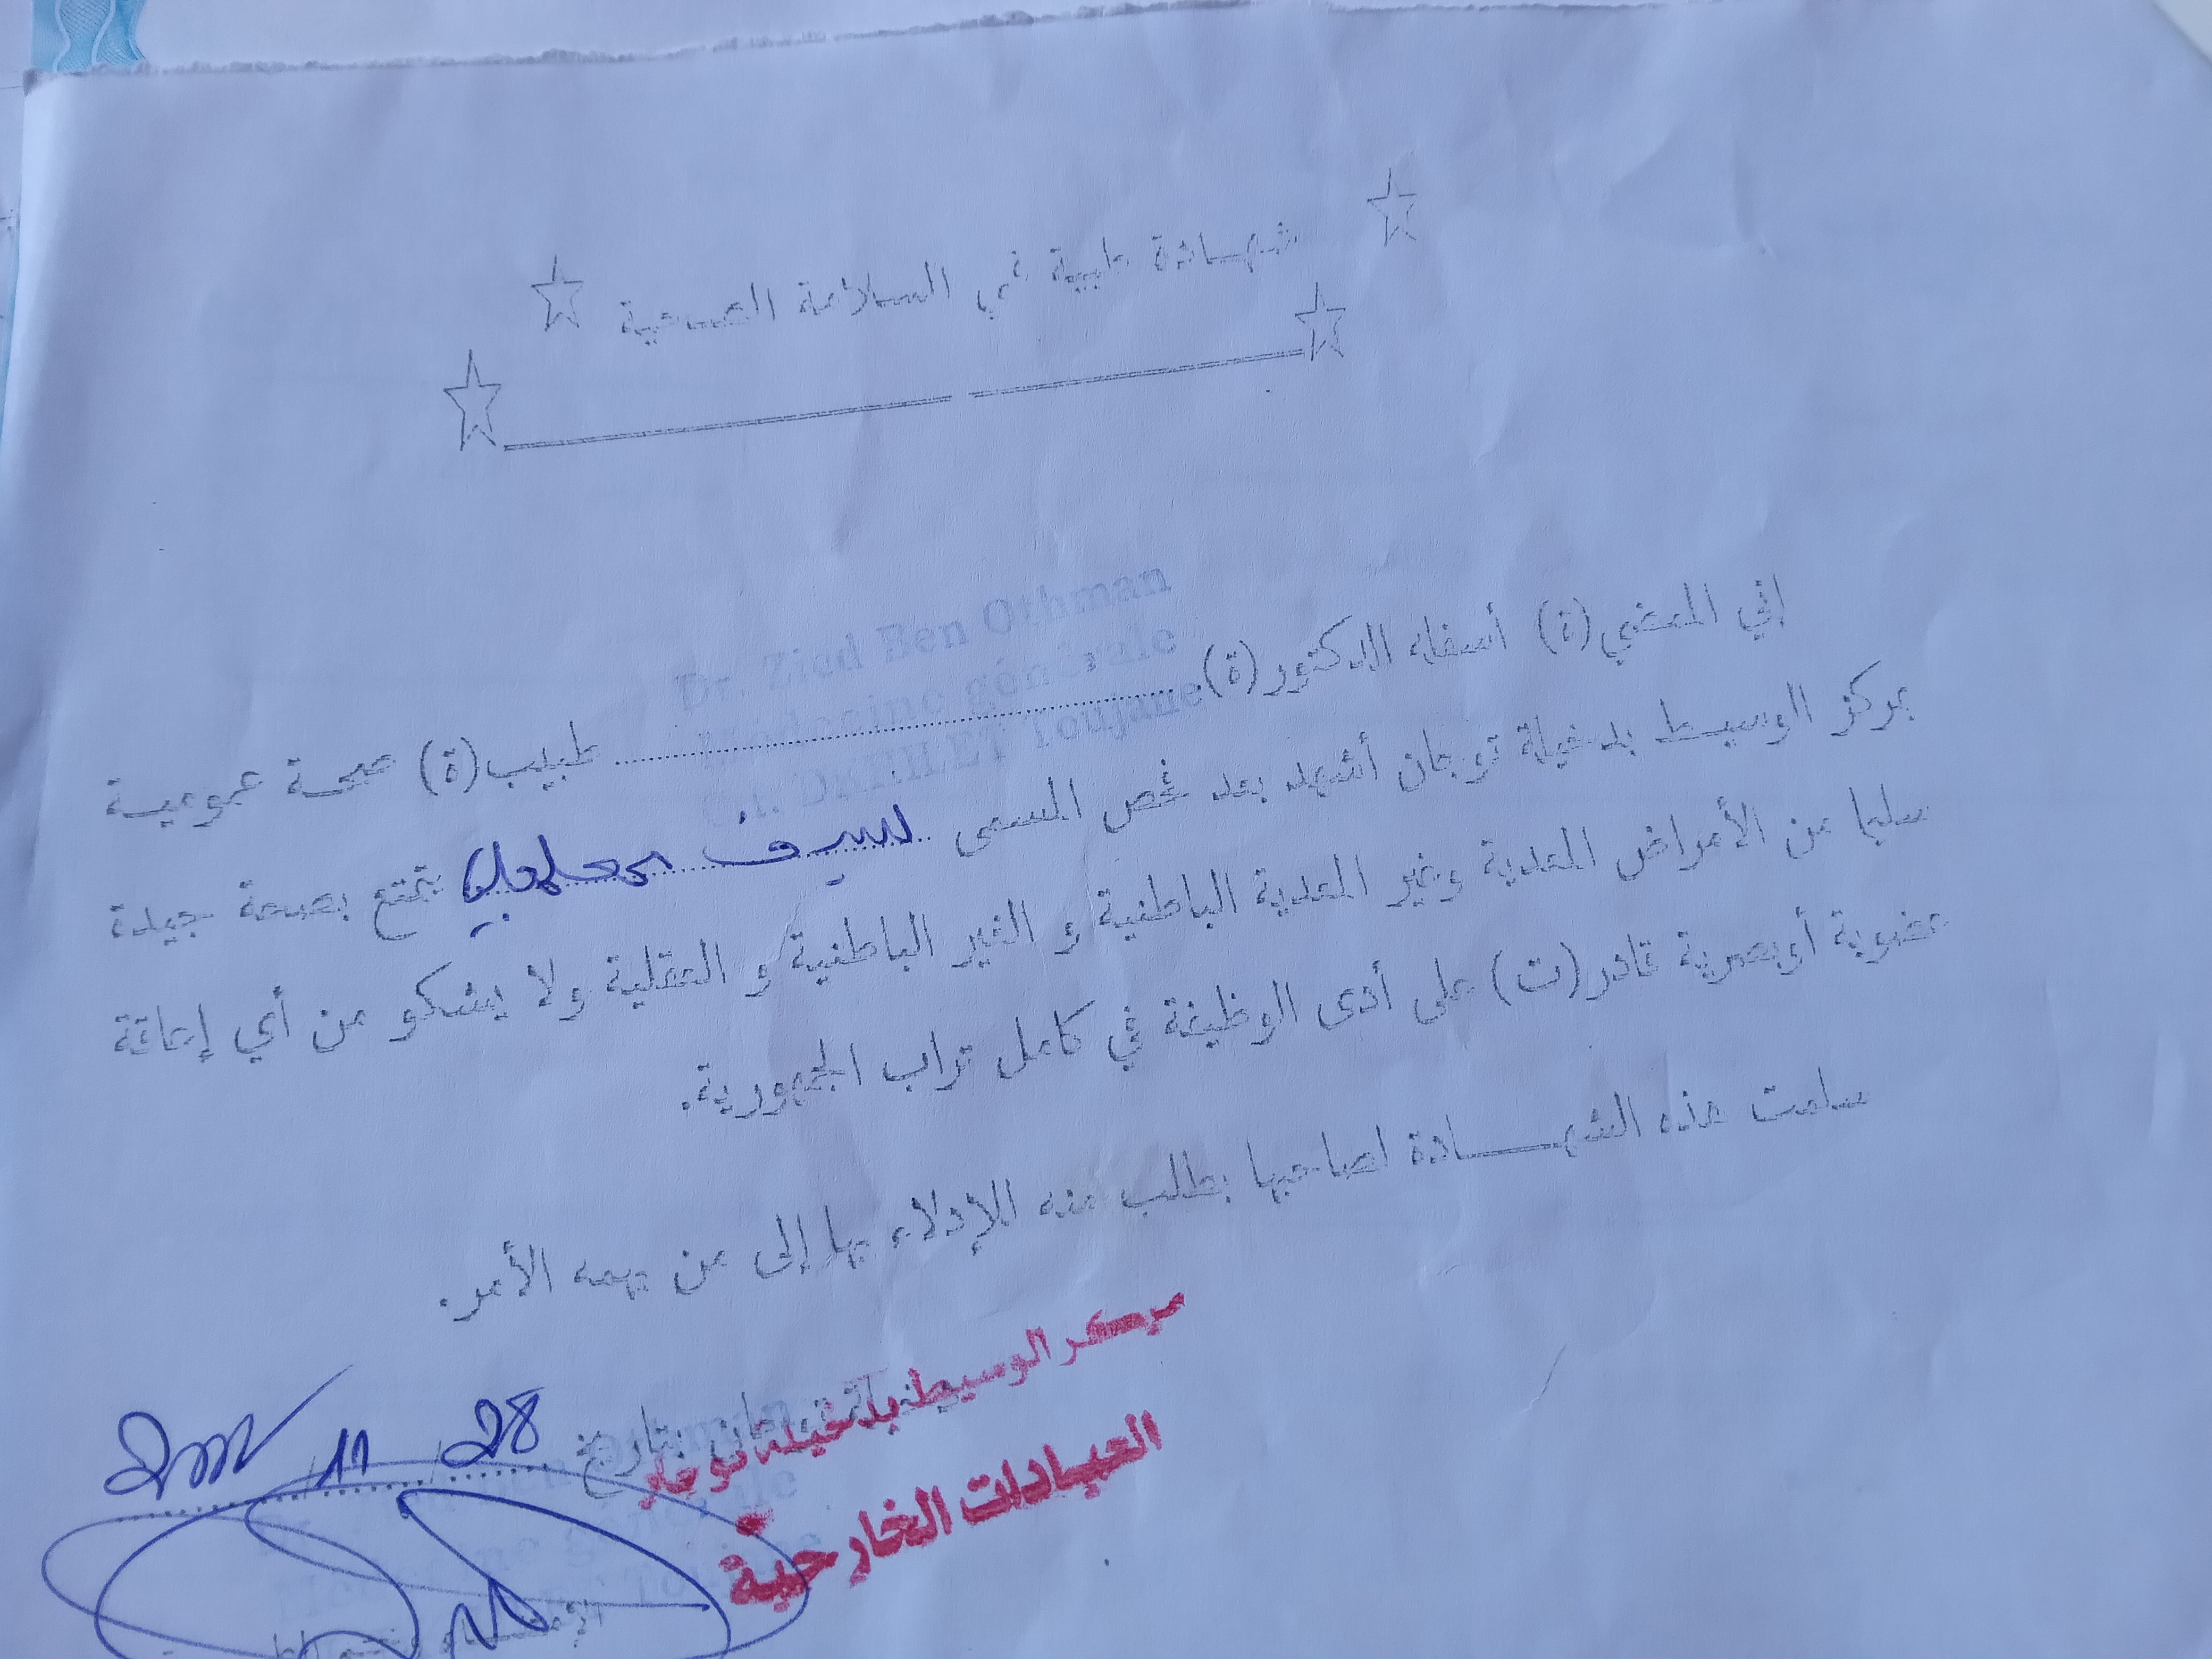 شهادة طبية في السلامة الصحية
Dr. Zied Ben Othman
Médecine générale
Toujane
إني الممضي(ة) أسفله الدكتور(ة)........................ طبيب(ة) صحة عمومية
بمركز الوسيط بدخيلة توجان أشهد بعد فحص المسمى سيف يتمتع بصحة جيدة
سليما من الأمراض المعدية وغير المعدية الباطنية و الغير الباطنية و العقلية ولا يشكو من أي إعاقة
عضوية أو بصرية قادر(ت) على أدى الوظيفة في كامل تراب الجمهورية.
سلمت هذه الشهادة لصاحبها بطلب منه للإدلاء بها إلى من يهمه الأمر.
مركز الوسيط بدخيلة توجان
بتاريخ 28 / 11 /
العيادات الخارجية